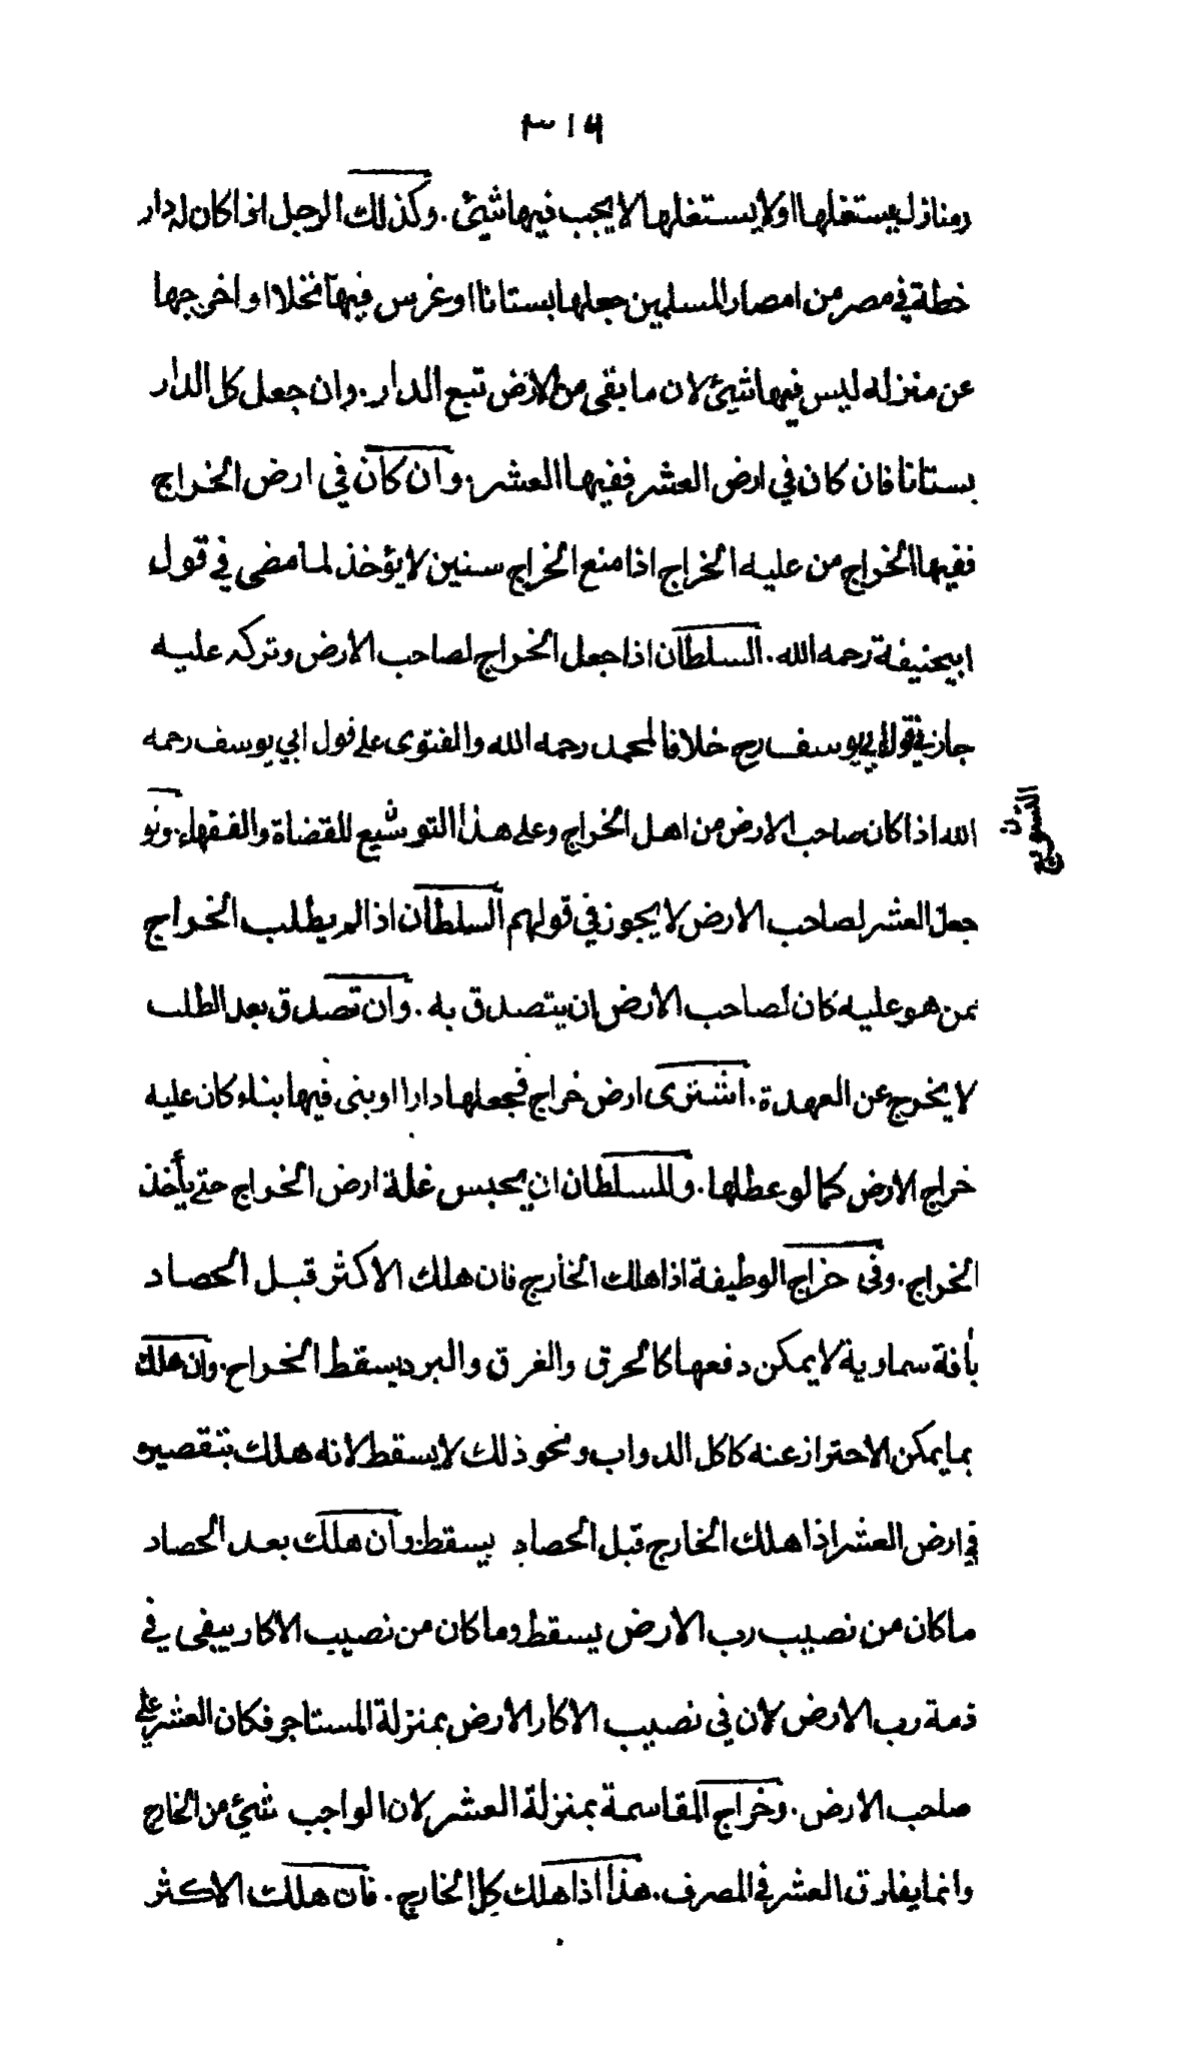 ٣١٦
ومنازل يستغلها اولا يستغلها لا يجب فيها شيئ . وكذلك الرجل اذا كان له دار
خطة في مصر من امصار المسلمين جعلها بستانا او غرس فيها نخلا او اخرجها
عن منزله ليس فيها شيئ لان ما بقى من الارض تبع الدار . وان جعل كل الدار
بستانا فان كان في ارض العشر ففيها العشر . وان كان في ارض الخراج
ففيها الخراج من عليه الخراج اذا منع الخراج سنين لا يؤخذ لما مضى في قول
ابيحنيفة رحمه الله . السلطان اذا جعل الخراج لصاحب الارض وتركه عليه
جاز في قول ابي يوسف رح خلافا لمحمد رحمه الله والفتوى على قول ابي يوسف رحمه
الله اذا كان صاحب الارض من اهل الخراج وعلى هذا التوشيع للقضاة والفقهاء . ولو
التسويغ ن
جعل العشر لصاحب الارض لا يجوز في قولهم السلطان اذا لم يطلب الخراج
ممن هو عليه كان لصاحب الارض ان يتصدق به . وان تصدق بعد الطلب
لا يخرج عن العهدة . اشترى ارض خراج فجعلها دارا او بنى فيها بناء كان عليه
خراج الارض كما لو عطلها . وللسلطان ان يحبس غلة ارض الخراج حتى يأخذ
الخراج . وفى خراج الوظيفة اذا هلك الخارج فان هلك الاكثر قبل الحصاد
بأفة سماوية لا يمكن دفعها كالحرق والغرق والبرد يسقط الخراج . وان هلك
بما يمكن الاحتراز عنه كاكل الدواب ونحو ذلك لا يسقط لانه هلك بتقصيره
في ارض العشر اذا هلك الخارج قبل الحصاد يسقط . وان هلك بعد الحصاد
ما كان من نصيب رب الارض يسقط وما كان من نصيب الاكار يبقى في
ذمة رب الارض لان في نصيب الاكار الارض بمنزلة المستاجر فكان العشر على
صاحب الارض . وخراج المقاسمة بمنزلة العشر لان الواجب شيئ من الخارج
وانما يفارق العشر في المصرف . هذا اذا هلك كل الخارج . فان هلك الاكثر